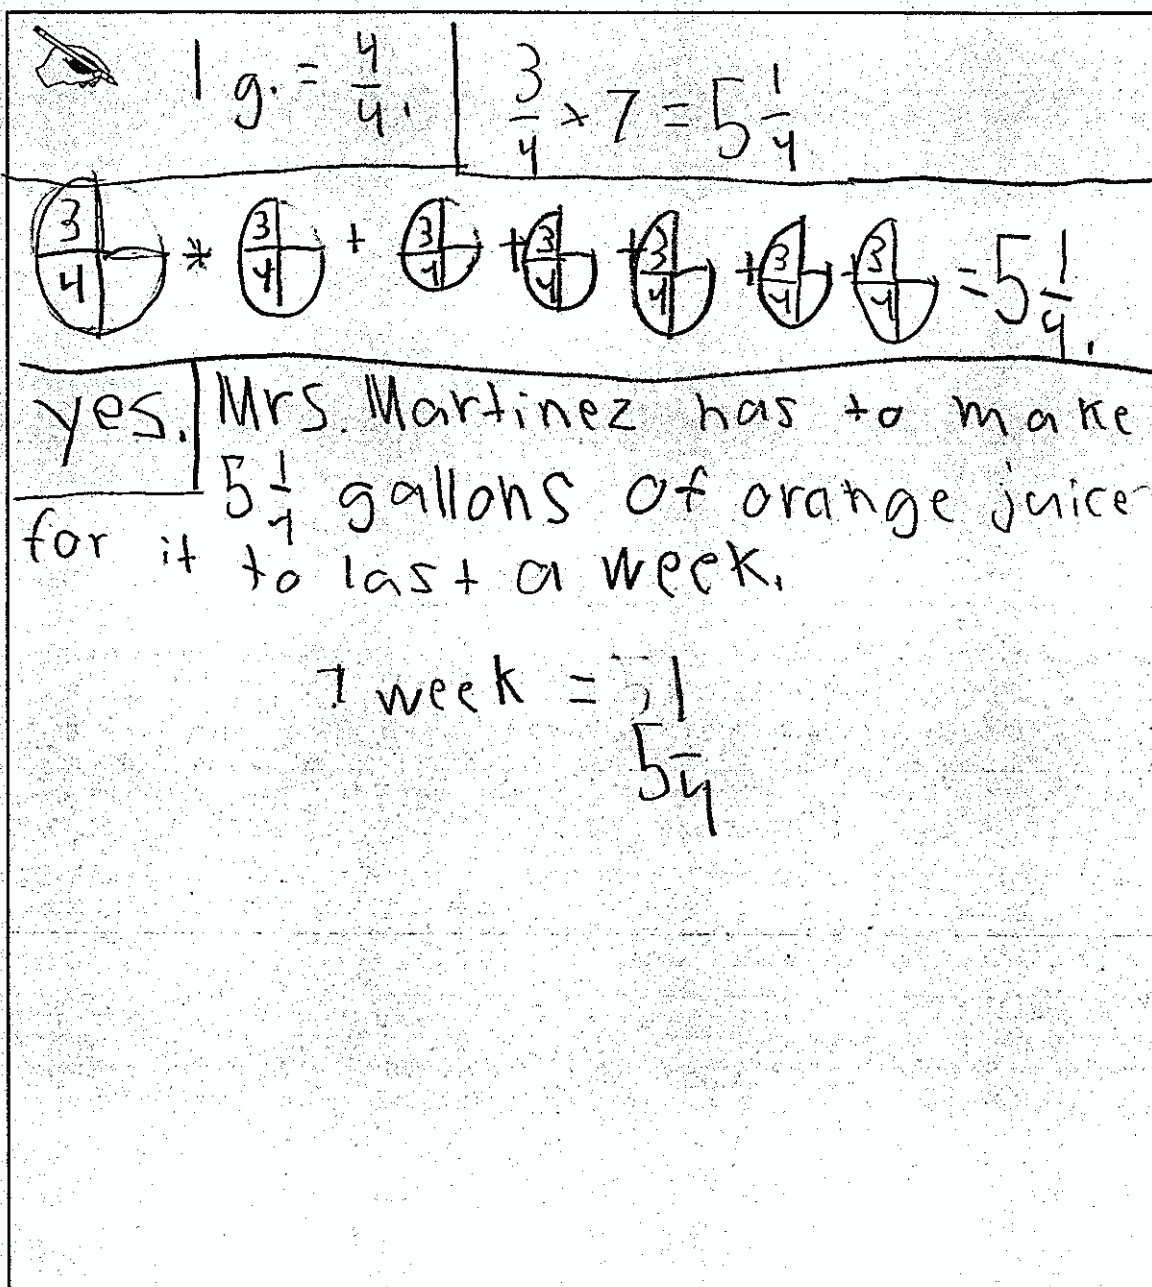 1 g. = 4/4. | 3/4 × 7 = 5 1/4
3/4 * 3/4 + 3/4 + 3/4 + 3/4 + 3/4 + 3/4 = 5 1/4.
yes. | Mrs. Martinez has to make
5 1/4 gallons of orange juice
for it to last a week.
1 week = 5 1/4